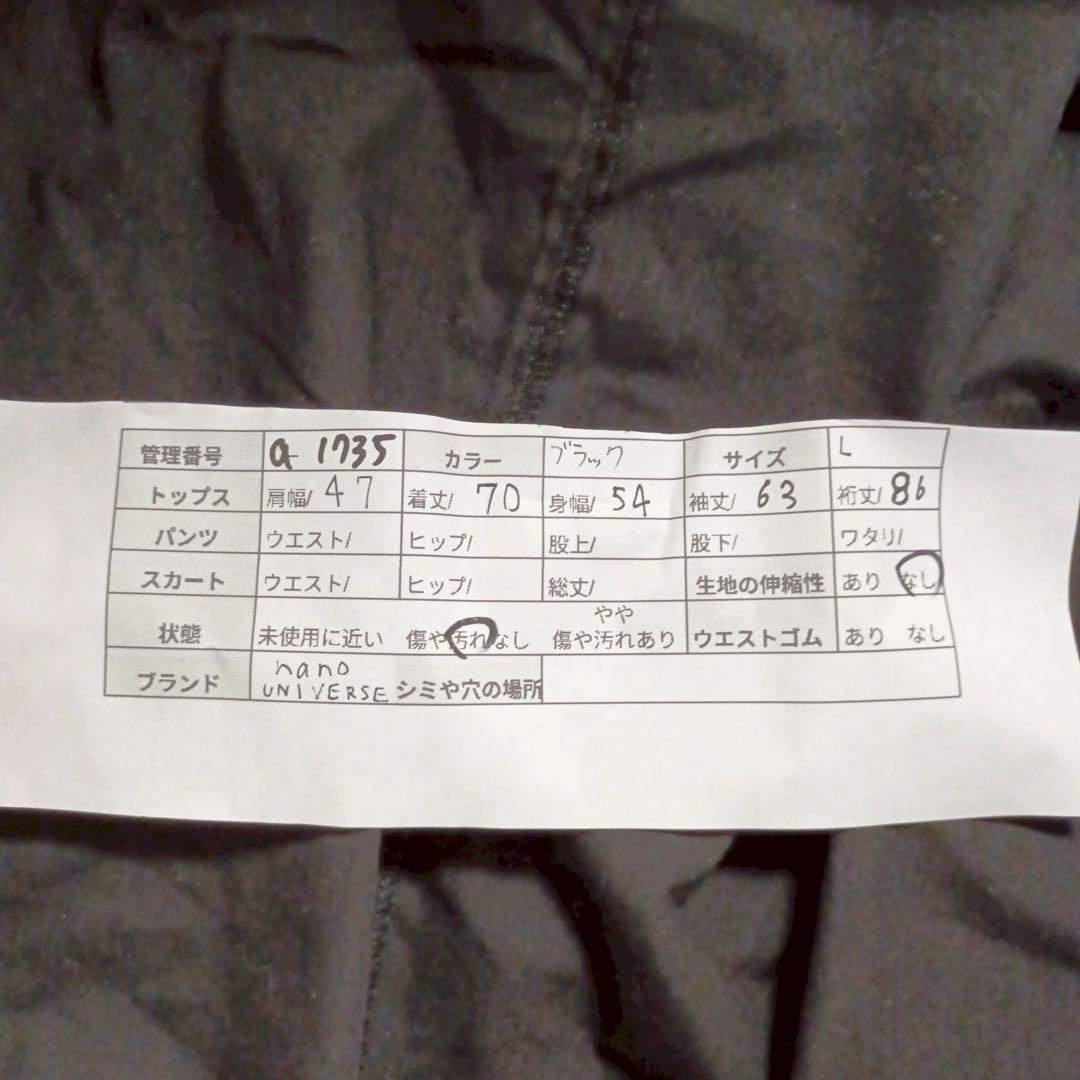 管理番号 a-1735 カラー ブラック サイズ L
トップス 肩幅/ 47 着丈/ 70 身幅/ 54 袖丈/ 63 裄丈/ 86
パンツ ウエスト/ ヒップ/ 股上/ 股下/ ワタリ/
スカート ウエスト/ ヒップ/ 総丈/ 生地の伸縮性 あり なし
状態 未使用に近い 傷や汚れなし やや傷や汚れあり ウエストゴム あり なし
ブランド nano UNIVERSE シミや穴の場所